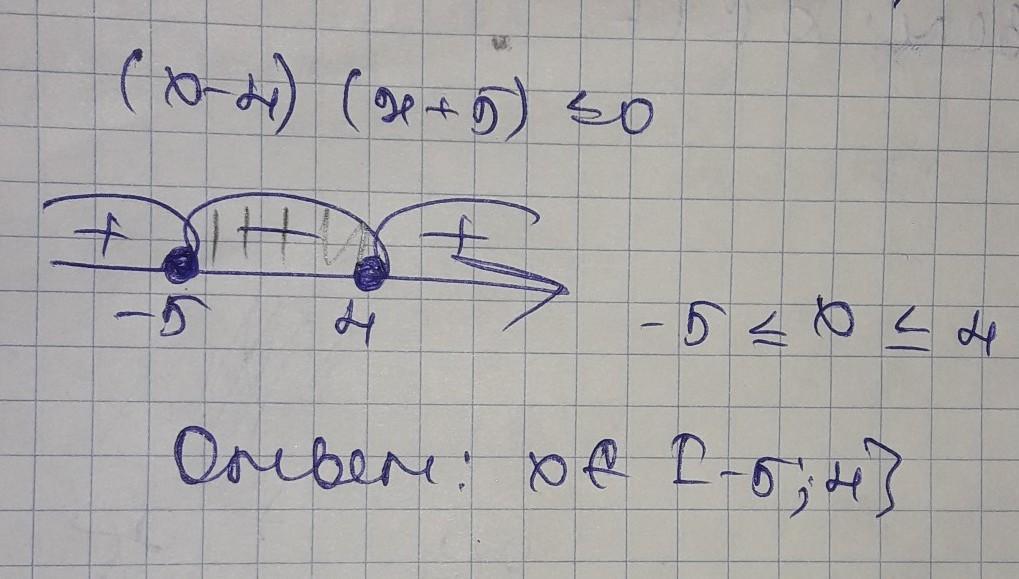 (x-4) (x+5) ≤0
+ - +
-5 4
-5 ≤ x ≤ 4
Ответ: x ∈ [-5; 4]